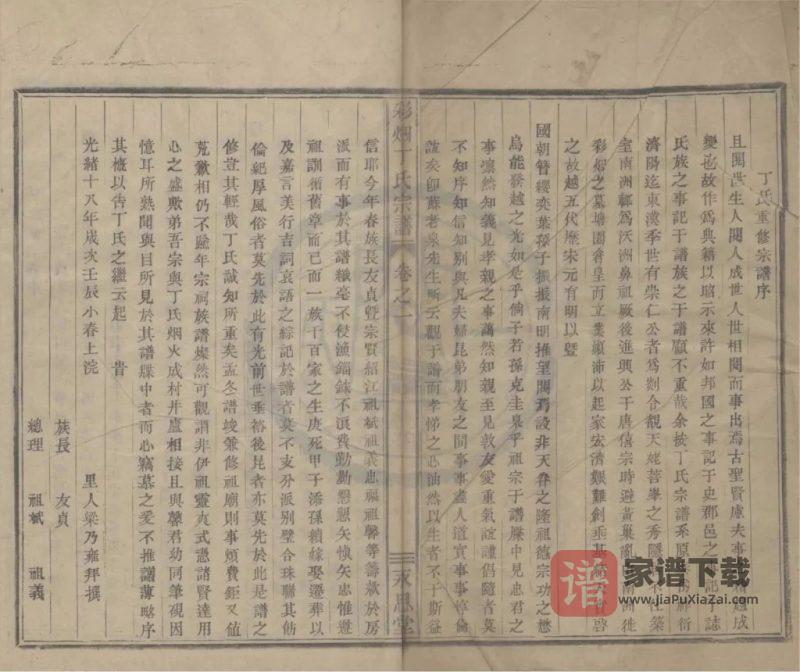 丁氏重修宗譜序
且聞世生人閱人成世人世相閱而事出焉古聖賢慮夫事
變也故作為典籍以昭示來許如邦國之事記于史郡邑之
氏族之事記于譜族之于譜顧不重哉余披丁氏宗譜系原
濟陽迄東漢季世有崇仁公者為剡令觀天姥菩峯之秀隱
室南洲鄉為沃洲鼻祖厥後進興公于唐僖宗時避黃巢亂
彩烟之墓塘圍倉皇而立業顛沛以起家宏濟艱難創垂基
之故越五代歷宋元有明以暨
國朝簪纓奕葉孫子振振南明推望閥焉設非天眷之隆祖德宗功之懋
烏能發越之光如是乎倘子若孫克圭臬乎祖宗于譜牒中見忠君之
事凜然知義見孝親之事藹然知親至見敦友愛重氣誼謙侶隨者莫
不知序知信知別與凡夫婦昆弟朋友之間事事盡人道實事事惇倫
誼矣卽蘇老泉先生所云觀于譜而孝悌之心油然以生者不于斯益
彩烟丁氏宗譜
卷之一
永思堂
信耶今年春族長友貞曁宗賢紹江祖斌祖義忠福祖馨等籌欵於房
派而有事於其譜纖毫不侵漁錙銖不浪費勤勤懇懇矢愼矢忠惟遵
祖訓循舊章而已而一族千百家之生庚死甲子添孫續嫁娶遷葬以
及嘉言美行吉詞哀語之綜記於譜者莫不支分派別璧合珠聯其飭
倫紀厚風俗者莫先於此有光前世垂裕後昆者亦莫先於此是譜之
修豈其輕哉丁氏誠知所重矣孟冬譜竣兼修祖廟則事煩費鉅又値
荒歉相仍不踰年宗祠族譜燦然可觀謂非伊祖靈爽式憑諸賢達用
心之盛歟弟吾宗與丁氏烟火成村井廬相接且與馨君幼同筆硯因
憶耳所熱聞與目所見於其譜牒中者而心竊慕之爰不推譾薄畧序
其槪以告丁氏之繼云起 者
光緒十八年歲次壬辰小春上浣
里人梁乃雍拜撰
族長 友貞
總理 祖斌 祖義
譜
家谱下载
www.jiaPuXiaZai.com